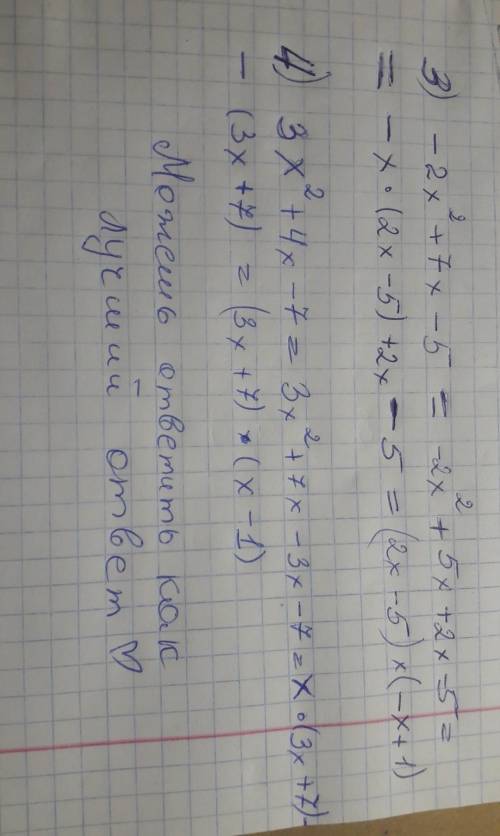 3) -2x² + 7x - 5 = -2x² + 5x + 2x - 5 =
= -x · (2x - 5) + 2x - 5 = (2x - 5) × (-x + 1)
4) 3x² + 4x - 7 = 3x² + 7x - 3x - 7 = x · (3x + 7) -
- (3x + 7) = (3x + 7) × (x - 1)
Можешь ответить как
лучший ответ ♡